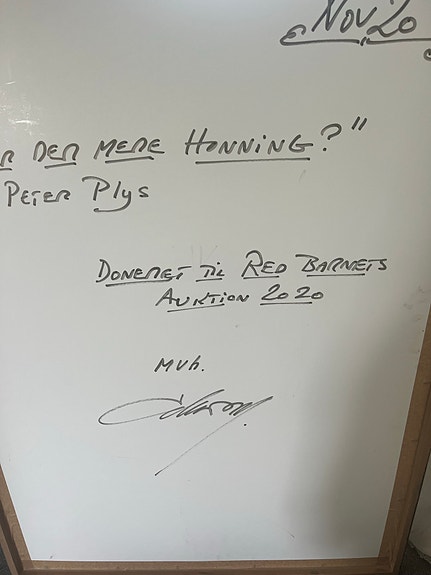 Nov'20
R DER MERE HONNING?"
PETER PLYS
DONERET TIL RED BARNETS
AUKTION 2020
MVH.